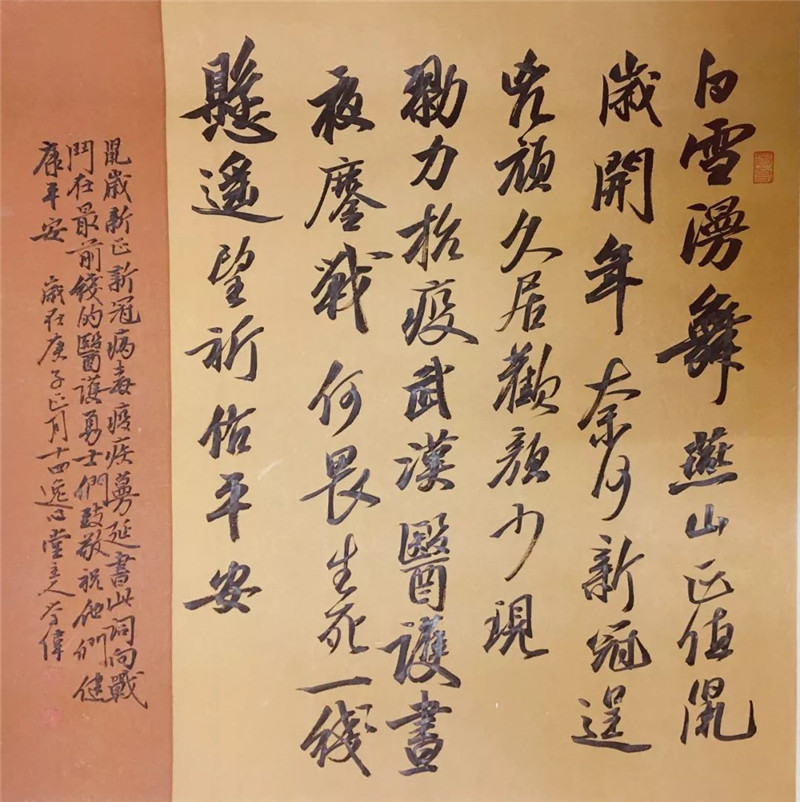 白雪漫舞燕山正值鼠
歲開年奈何新冠逞
兇頑久居歡顏少現
勠力抗疫武漢醫護晝
夜鏖戰何畏生死一綫
懸遥望祈佑平安
鼠歲新正新冠病毒疫疾蔓延書此詞向戰
鬥在最前綫的醫護勇士們致敬祝他們健
康平安 歲在庚子正月十四逸堂主人偉